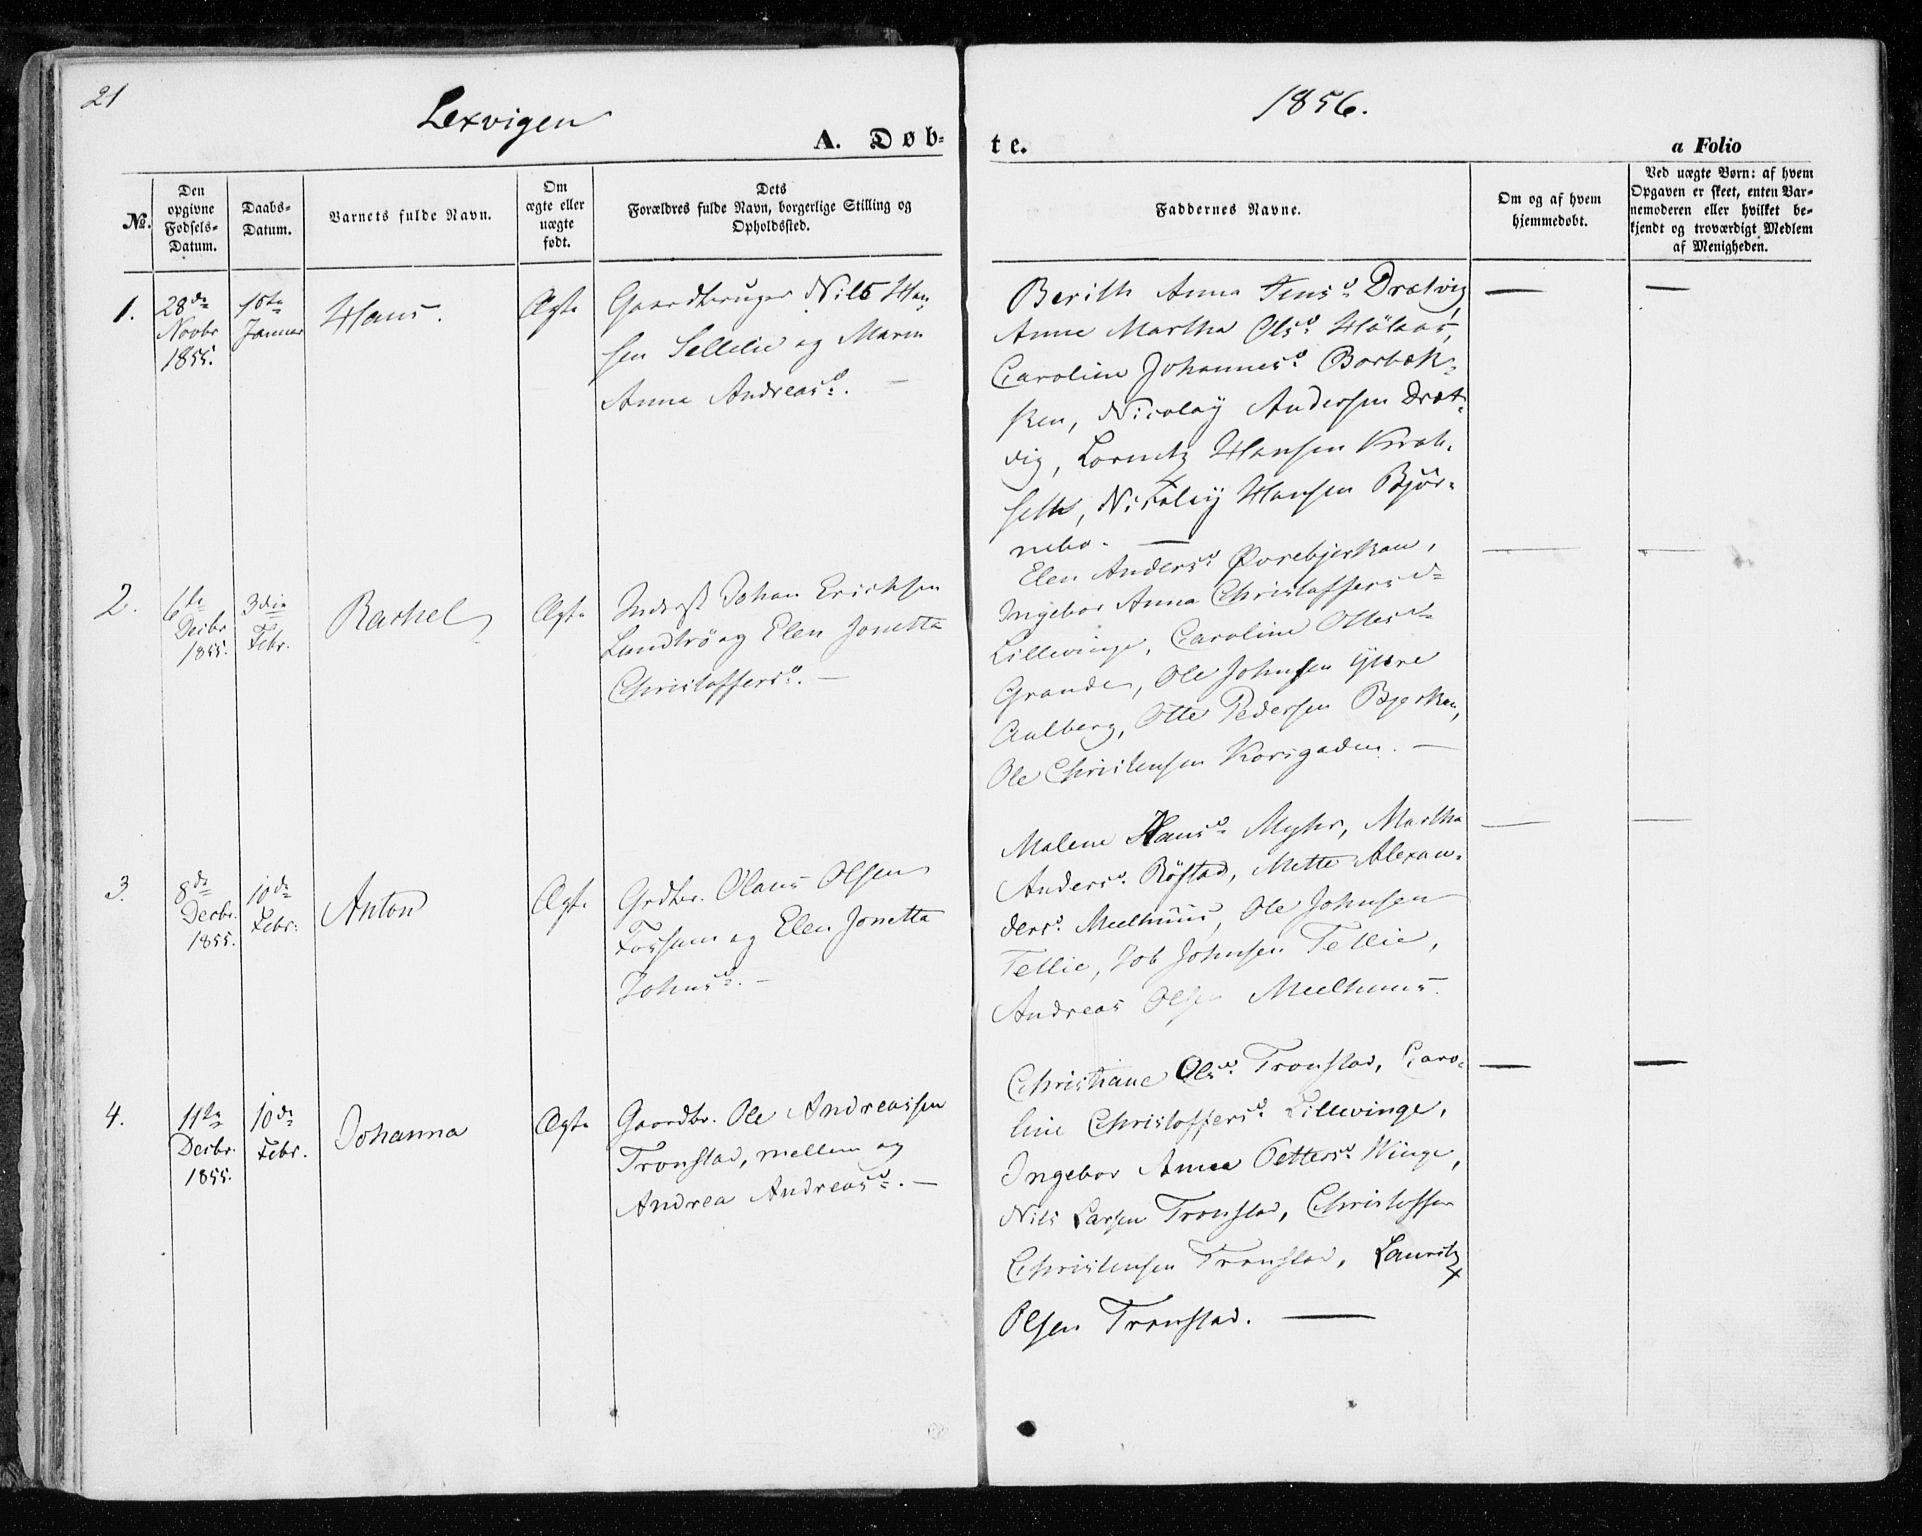 21
Lexvigen
1856.
A. Døb-
te.
a Folio
No.
Den opgivne Fødsels-Datum.
Daabs-Datum.
Barnets fulde Navn.
Om ægte eller uægte født.
Dets Forældres fulde Navn, borgerlige Stilling og Opholdssted.
Faddernes Navne.
Om og af hvem hjemmedøbt.
Ved uægte Børn: af hvem Opgaven er skeet, enten Barnemoderen eller hvilket bekjendt og troværdigt Medlem af Menigheden.
1.
28de Novbr 1855.
10de Januar
Hans.
Ægte
Gaardbruger Nils Han-
sen Sellelie og Maren
Anna Andreasd. —
Berith Anna Jensd. Drætvig,
Anne Martha Olsd. Hölaas,
Caroline Johannesd. Borbæk-
ken, Nicolay Andersen Dræt-
vig, Lorentz Hansen Kvah-
seth, Nicolay Hansen Björ-
nebo. —
—
—
2.
6te Decbr 1855.
3die Febr.
Rachel
Ægte
Inderst Johan Erichsen
Landrö og Elen Jonetta
Christoffersd. —
Elen Andersd. Øvrebjerkan,
Ingebor Anna Christoffersd.
Lillevinge, Caroline Ottesd.
Grande, Ole Johnsen Yttre
Aalberg, Otte Pedersen Bjerkan,
Ole Christensen Korsgaden. —
—
—
3.
8de Decbr. 1855.
10de Febr.
Anton
Ægte
Grdbr. Olaus Olsen
Fossum og Elen Jonetta
Johnsd. —
Malene Hansd. Myhr, Martha
Andersd. Röstad, Mette Alexan-
dersd. Meelhuus, Ole Johnsen
Tellie, Job Johnsen Tellie,
Andreas Olsen Meelhuus.
—
—
4.
11te Decbr. 1855.
10de Febr.
Johanna
Ægte
Gaardbr. Ole Andreassen
Tronstad, mellem og
Andrea Andreasd. —
Christiane Olsd. Tronstad, Caro-
line Christoffersd. Lillevinge,
Ingebor Anna Pettersd. Winge,
Nils Larsen Tronstad, Christoffer
Christensen Tronstad, Lauritz
Olsen Tronstad. —
—
—